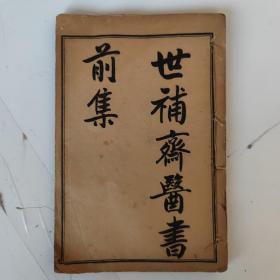 世補齋醫書
前集